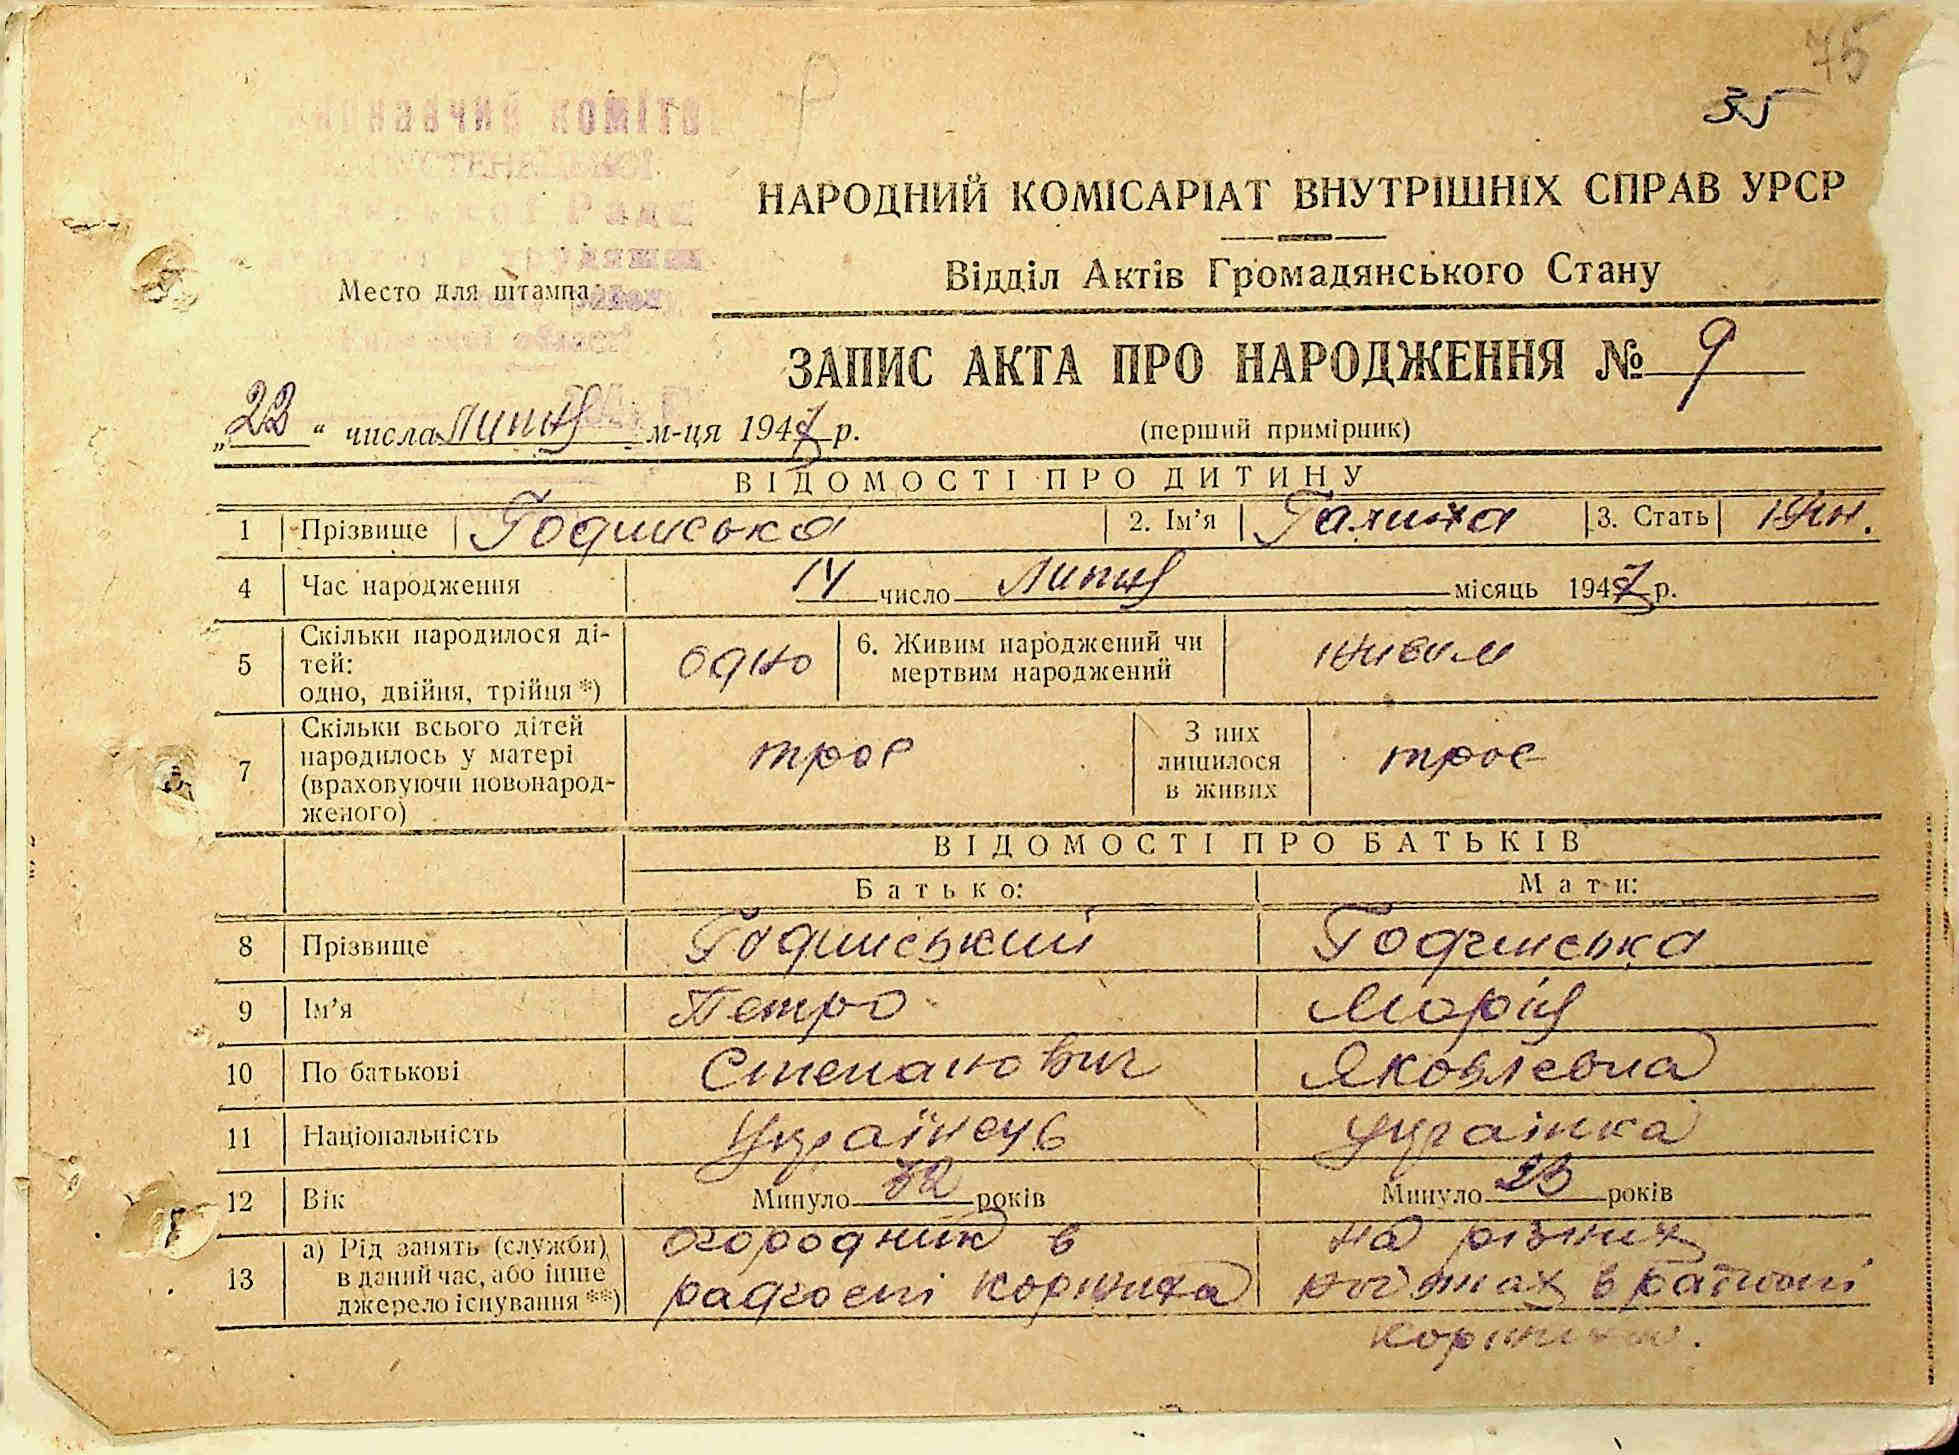 75
35
НАРОДНИЙ КОМІСАРІАТ ВНУТРІШНІХ СПРАВ УРСР
Відділ Актів Громадянського Стану
Место для штампа
ЗАПИС АКТА ПРО НАРОДЖЕННЯ № 9
„22“ числа липня м-ця 1947 р.
(перший примірник)
ВІДОМОСТІ ПРО ДИТИНУ
1 Прізвище Годинська 2. Ім'я Галина 3. Стать жін.
4 Час народження 14 число Липня місяць 1947 р.
5 Скільки народилося ді-
тей:
одно, двійня, трійня *) одно 6. Живим народжений чи
мертвим народжений живим
7 Скільки всього дітей
народилось у матері
(враховуючи новонарод-
женого) троє З них
лишилося
в живих троє
ВІДОМОСТІ ПРО БАТЬКІВ
Батько: Мати:
8 Прізвище Годинський Годинська
9 Ім'я Петро Марія
10 По батькові Степанович Яковлевна
11 Національність Українець українка
12 Вік Минуло 32 років Минуло 23 років
13 а) Рід занять (служби)
в даний час, або інше
джерело існування **)
огородник в на різних
радгоспі в